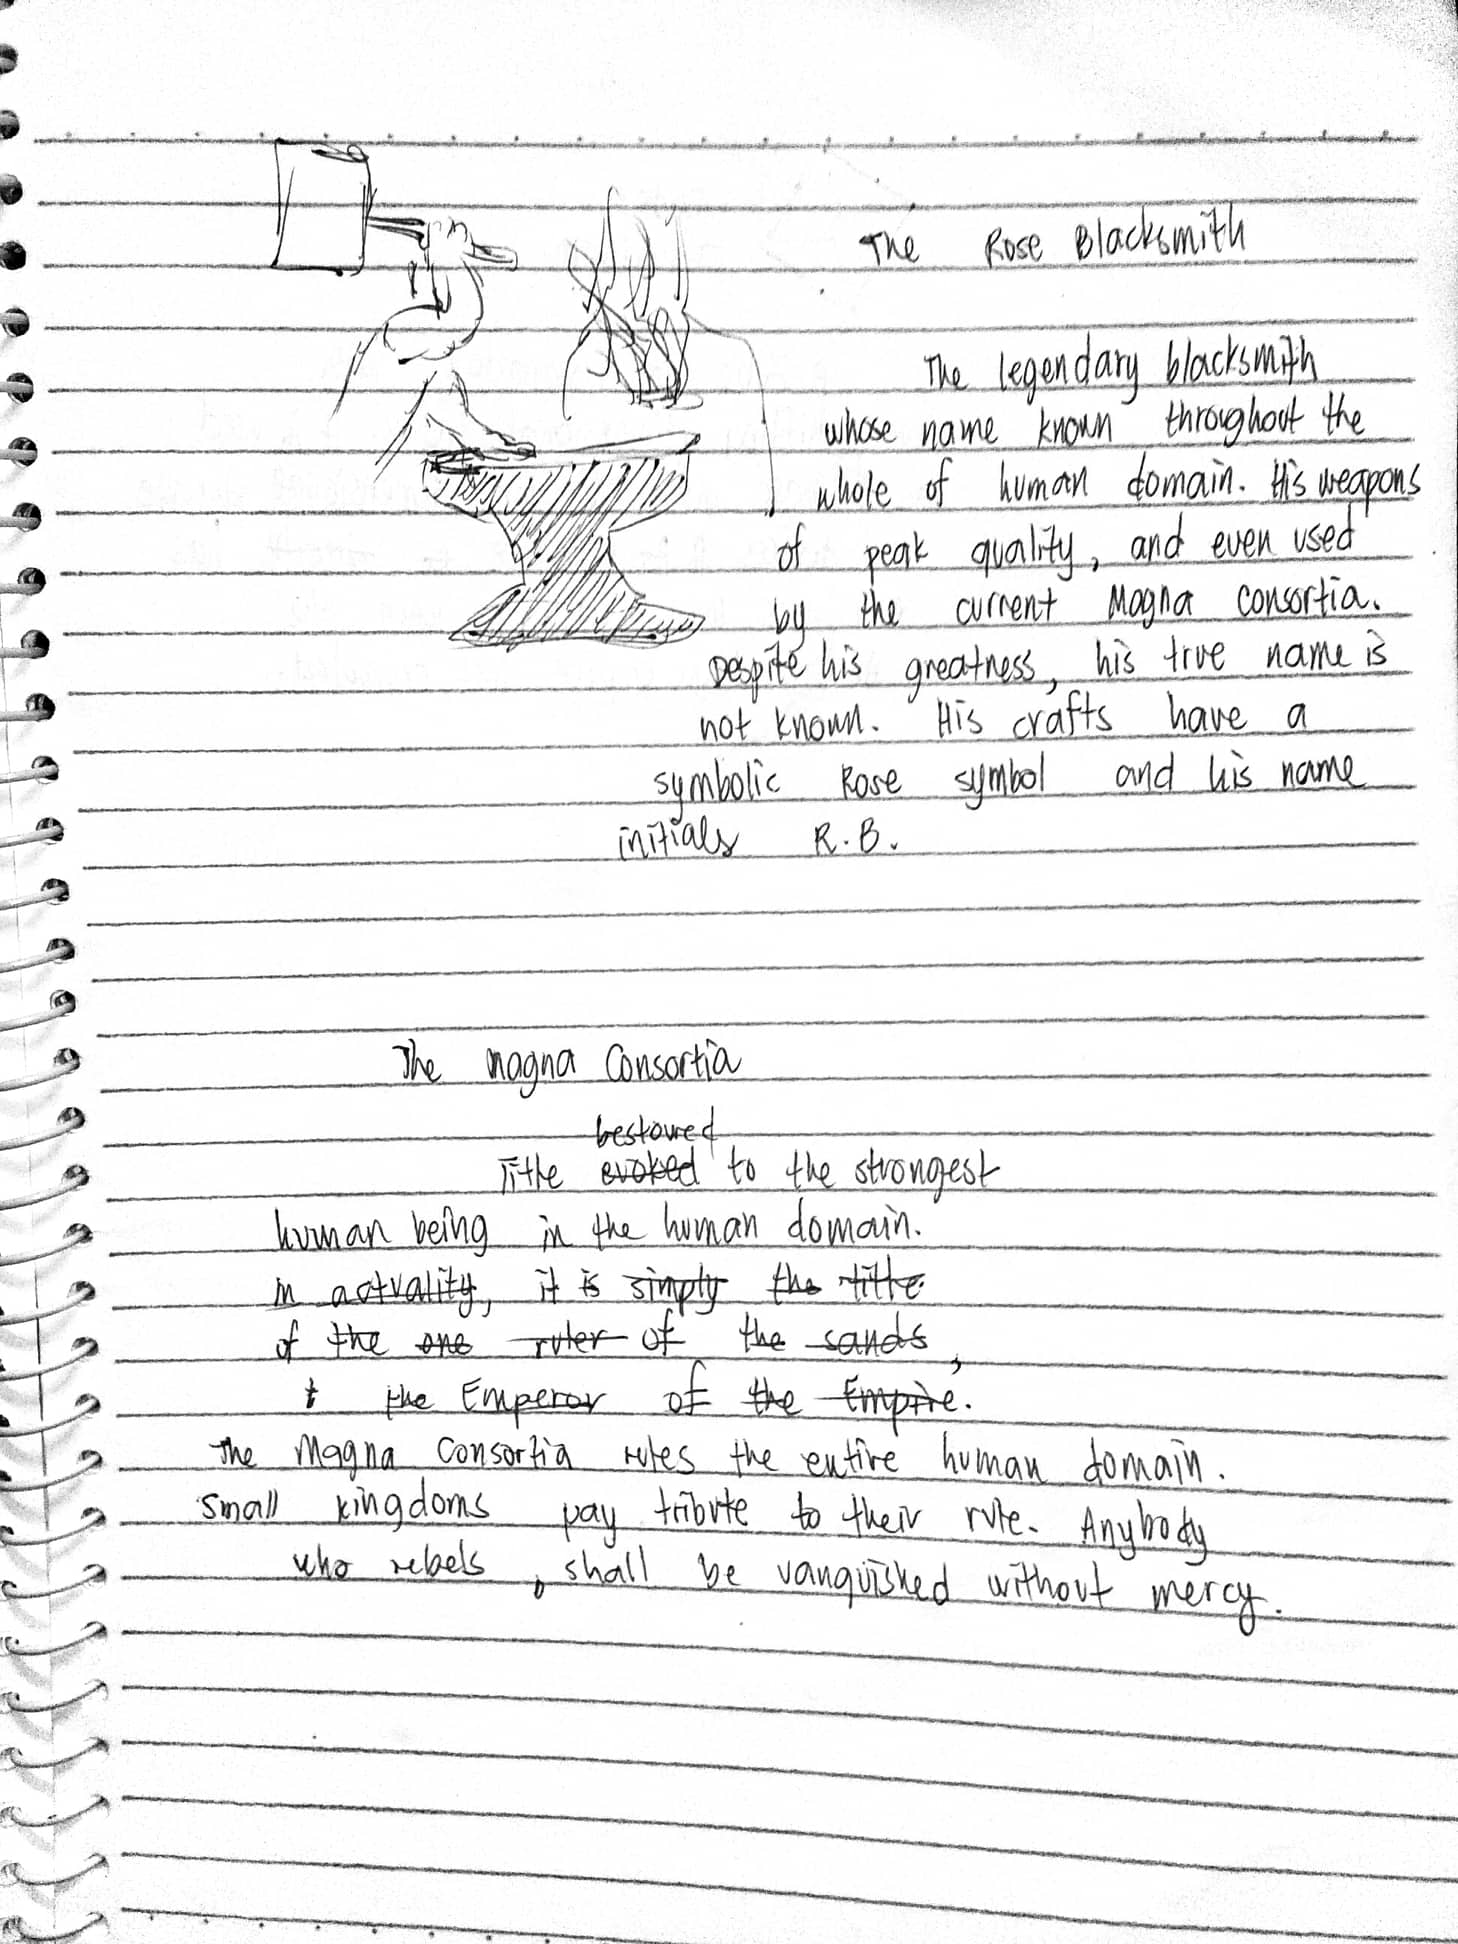 The Rose Blacksmith
The legendary blacksmith
whose name known throughout the
whole of human domain. His weapons
of peak quality, and even used
by the current Magna Consortia.
Despite his greatness, his true name is
not known. His crafts have a
symbolic Rose symbol and his name
initials R.B.
The Magna Consortia
bestowed
Title evoked to the strongest
human being in the human domain.
in actuality, it is simply the title
of the one ruler of the sands,
t the Emperor of the Empire.
The Magna Consortia rules the entire human domain.
small kingdoms pay tribute to their rule. Anybody
who rebels, shall be vanquished without mercy.